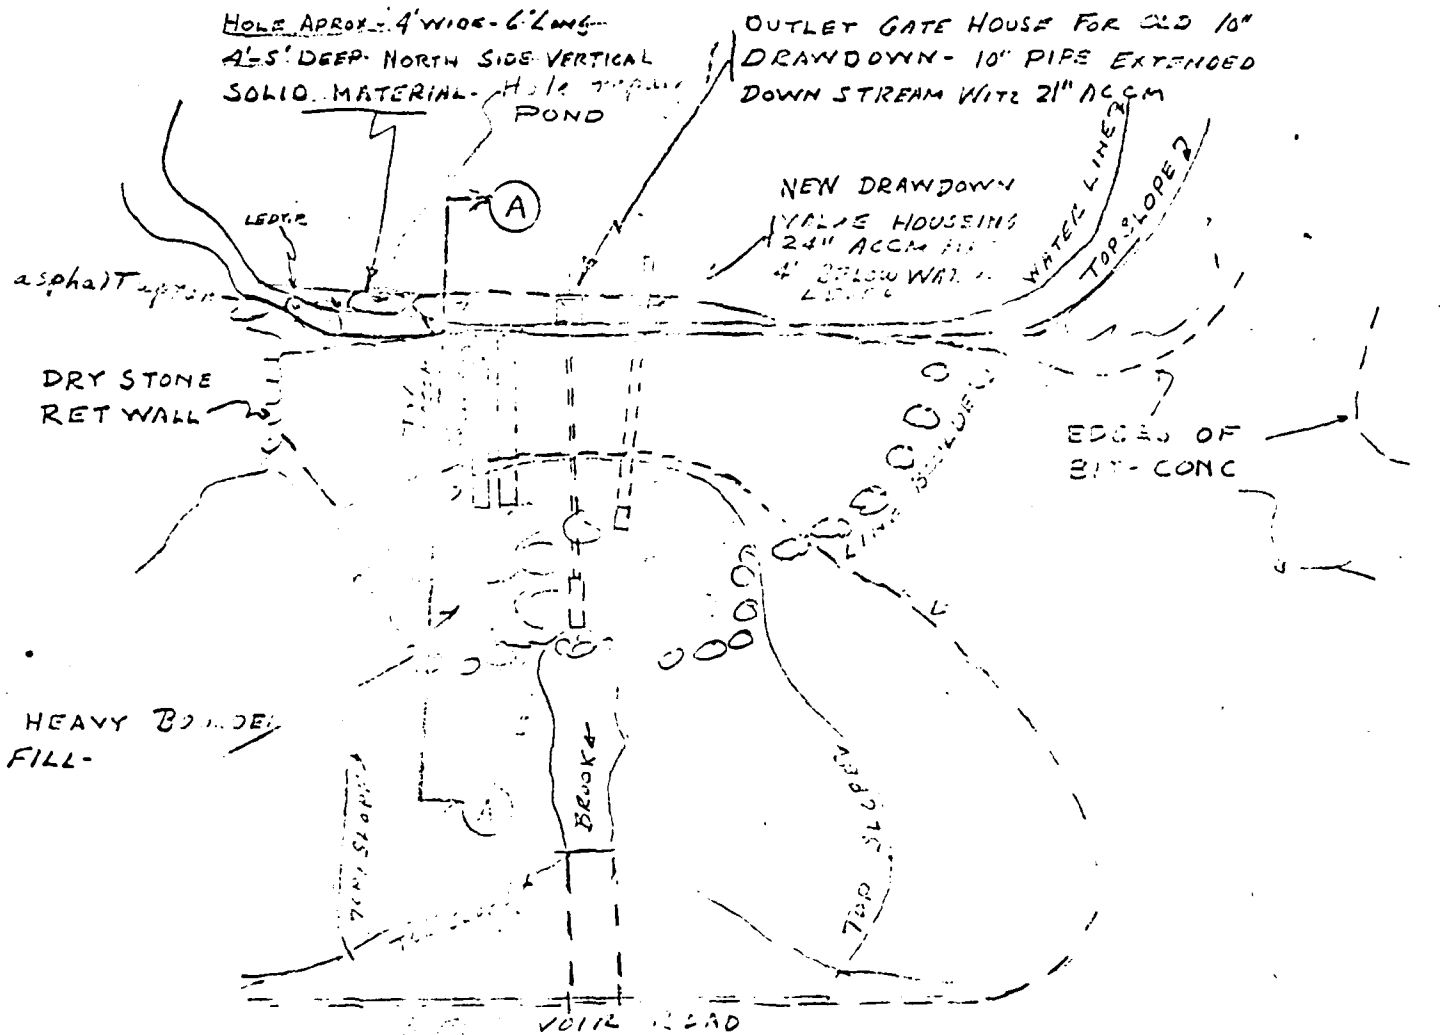 HOLE APROX - 4' WIDE - 6' LONG
4'-5' DEEP. NORTH SIDE VERTICAL
SOLID MATERIAL.
Hole
POND
OUTLET GATE HOUSE FOR OLD 10"
DRAWDOWN - 10" PIPE EXTENDED
DOWN STREAM WITH 21" ACCM
A
NEW DRAWDOWN
VALVE HOUSEING
24" ACCM
4' BELOW
WATER LINE
TOP SLOPE
asphalt apron
DRY STONE
RET WALL
EDGES OF
BIT-CONC
LINE BOULDERS
HEAVY BOULDER
FILL-
A
BROOK
TOP SLOPE
TOP SLOPE
ROAD